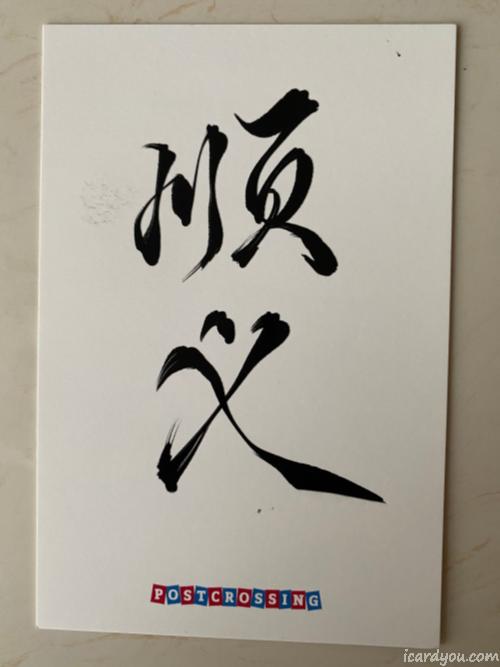 顺
义
POSTCROSSING
icardyou.com